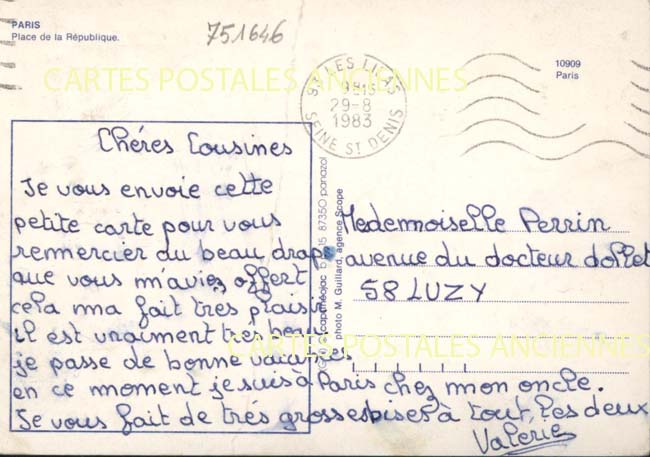 PARIS
Place de la République.
751646
10909
Paris
CARTES POSTALES ANCIENNES
93 LES LILAS
29-8
1983
SEINE ST DENIS
Chéres Cousines
Je vous envoie cette
petite carte pour vous
remmercier du beau drap
que vous m'aviez offert
cela ma fait très plaisir
il est vraiment très beau
je passe de bonne
en ce moment je suis à Paris chez mon oncle.
Je vous fait de trés grosses bises à tout les deux
Valérie
87350 panazol
photo M. Guillard, agence Scope
Medemoiselle Perrin
avenue du docteur dollet
58 LUZY
CARTES POSTALES ANCIENNES